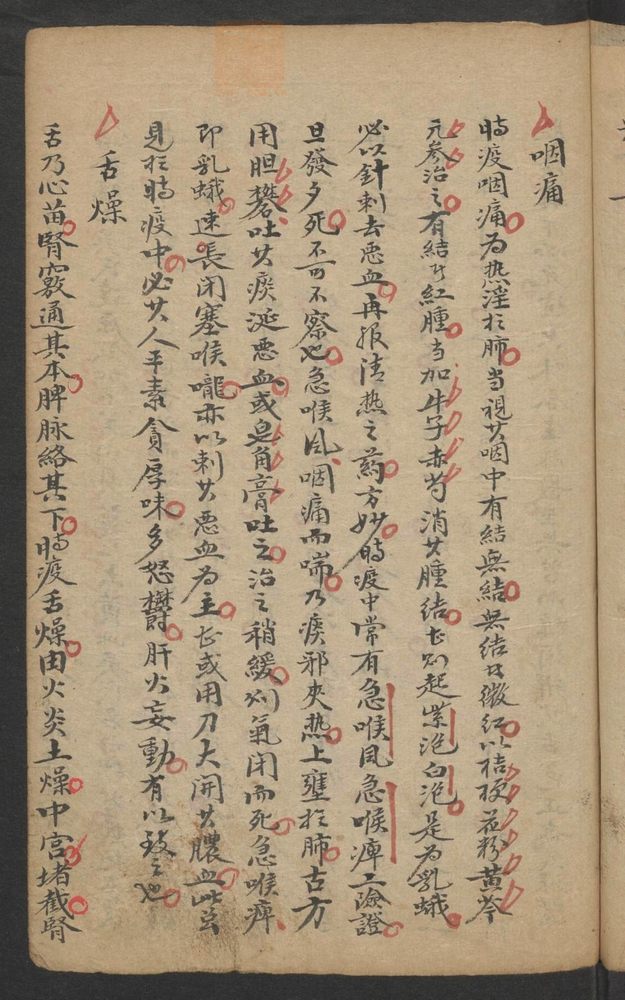 咽痛
時疫咽痛為热淫於肺当視其咽中有結無結無結者微紅以桔梗花粉黄芩
元参治之有結者紅腫当加牛子赤芍消其腫結甚则起紫泡白泡是为乳蛾
必以針刺去悪血再报清热之药方妙時疫中常有急喉风急喉痺二險證
旦發夕死不可不察也急喉风咽痛而喘乃痰邪夾热上壅於肺古方
用胆礬吐其痰涎悪血或皂角膏吐之治之稍緩则氣闭而死急喉痺
即乳蛾速長闭塞喉嚨亦以刺其悪血为主甚或用刀大開其膿血此症
見於時疫中必其人平素貪厚味多怒欝肝火妄動有以致之也
舌燥
舌乃心苗腎竅通其本脾脉絡其下時疫舌燥由火炎土燥中宫堵截腎